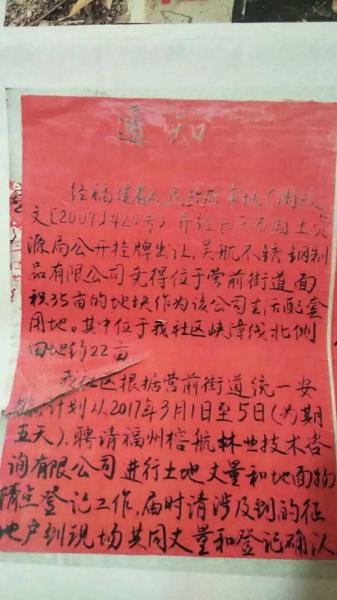 通知
经福建省人民政府审批(闽政
文〔2009〕420号)并经长乐市国土资
源局公开挂牌出让,吴航不锈钢制
品有限公司竞得位于营前街道面
积35亩的地块作为该公司生活配套
用地。其中位于我社区峡漳线北侧
田地约22亩
我社区根据营前街道统一安
排计划从2017年3月1日至5日(为期
五天),聘请福州榕航林业技术咨
询有限公司进行土地丈量和地面物
清点登记工作,届时请涉及到的征
地户到现场共同丈量和登记确认